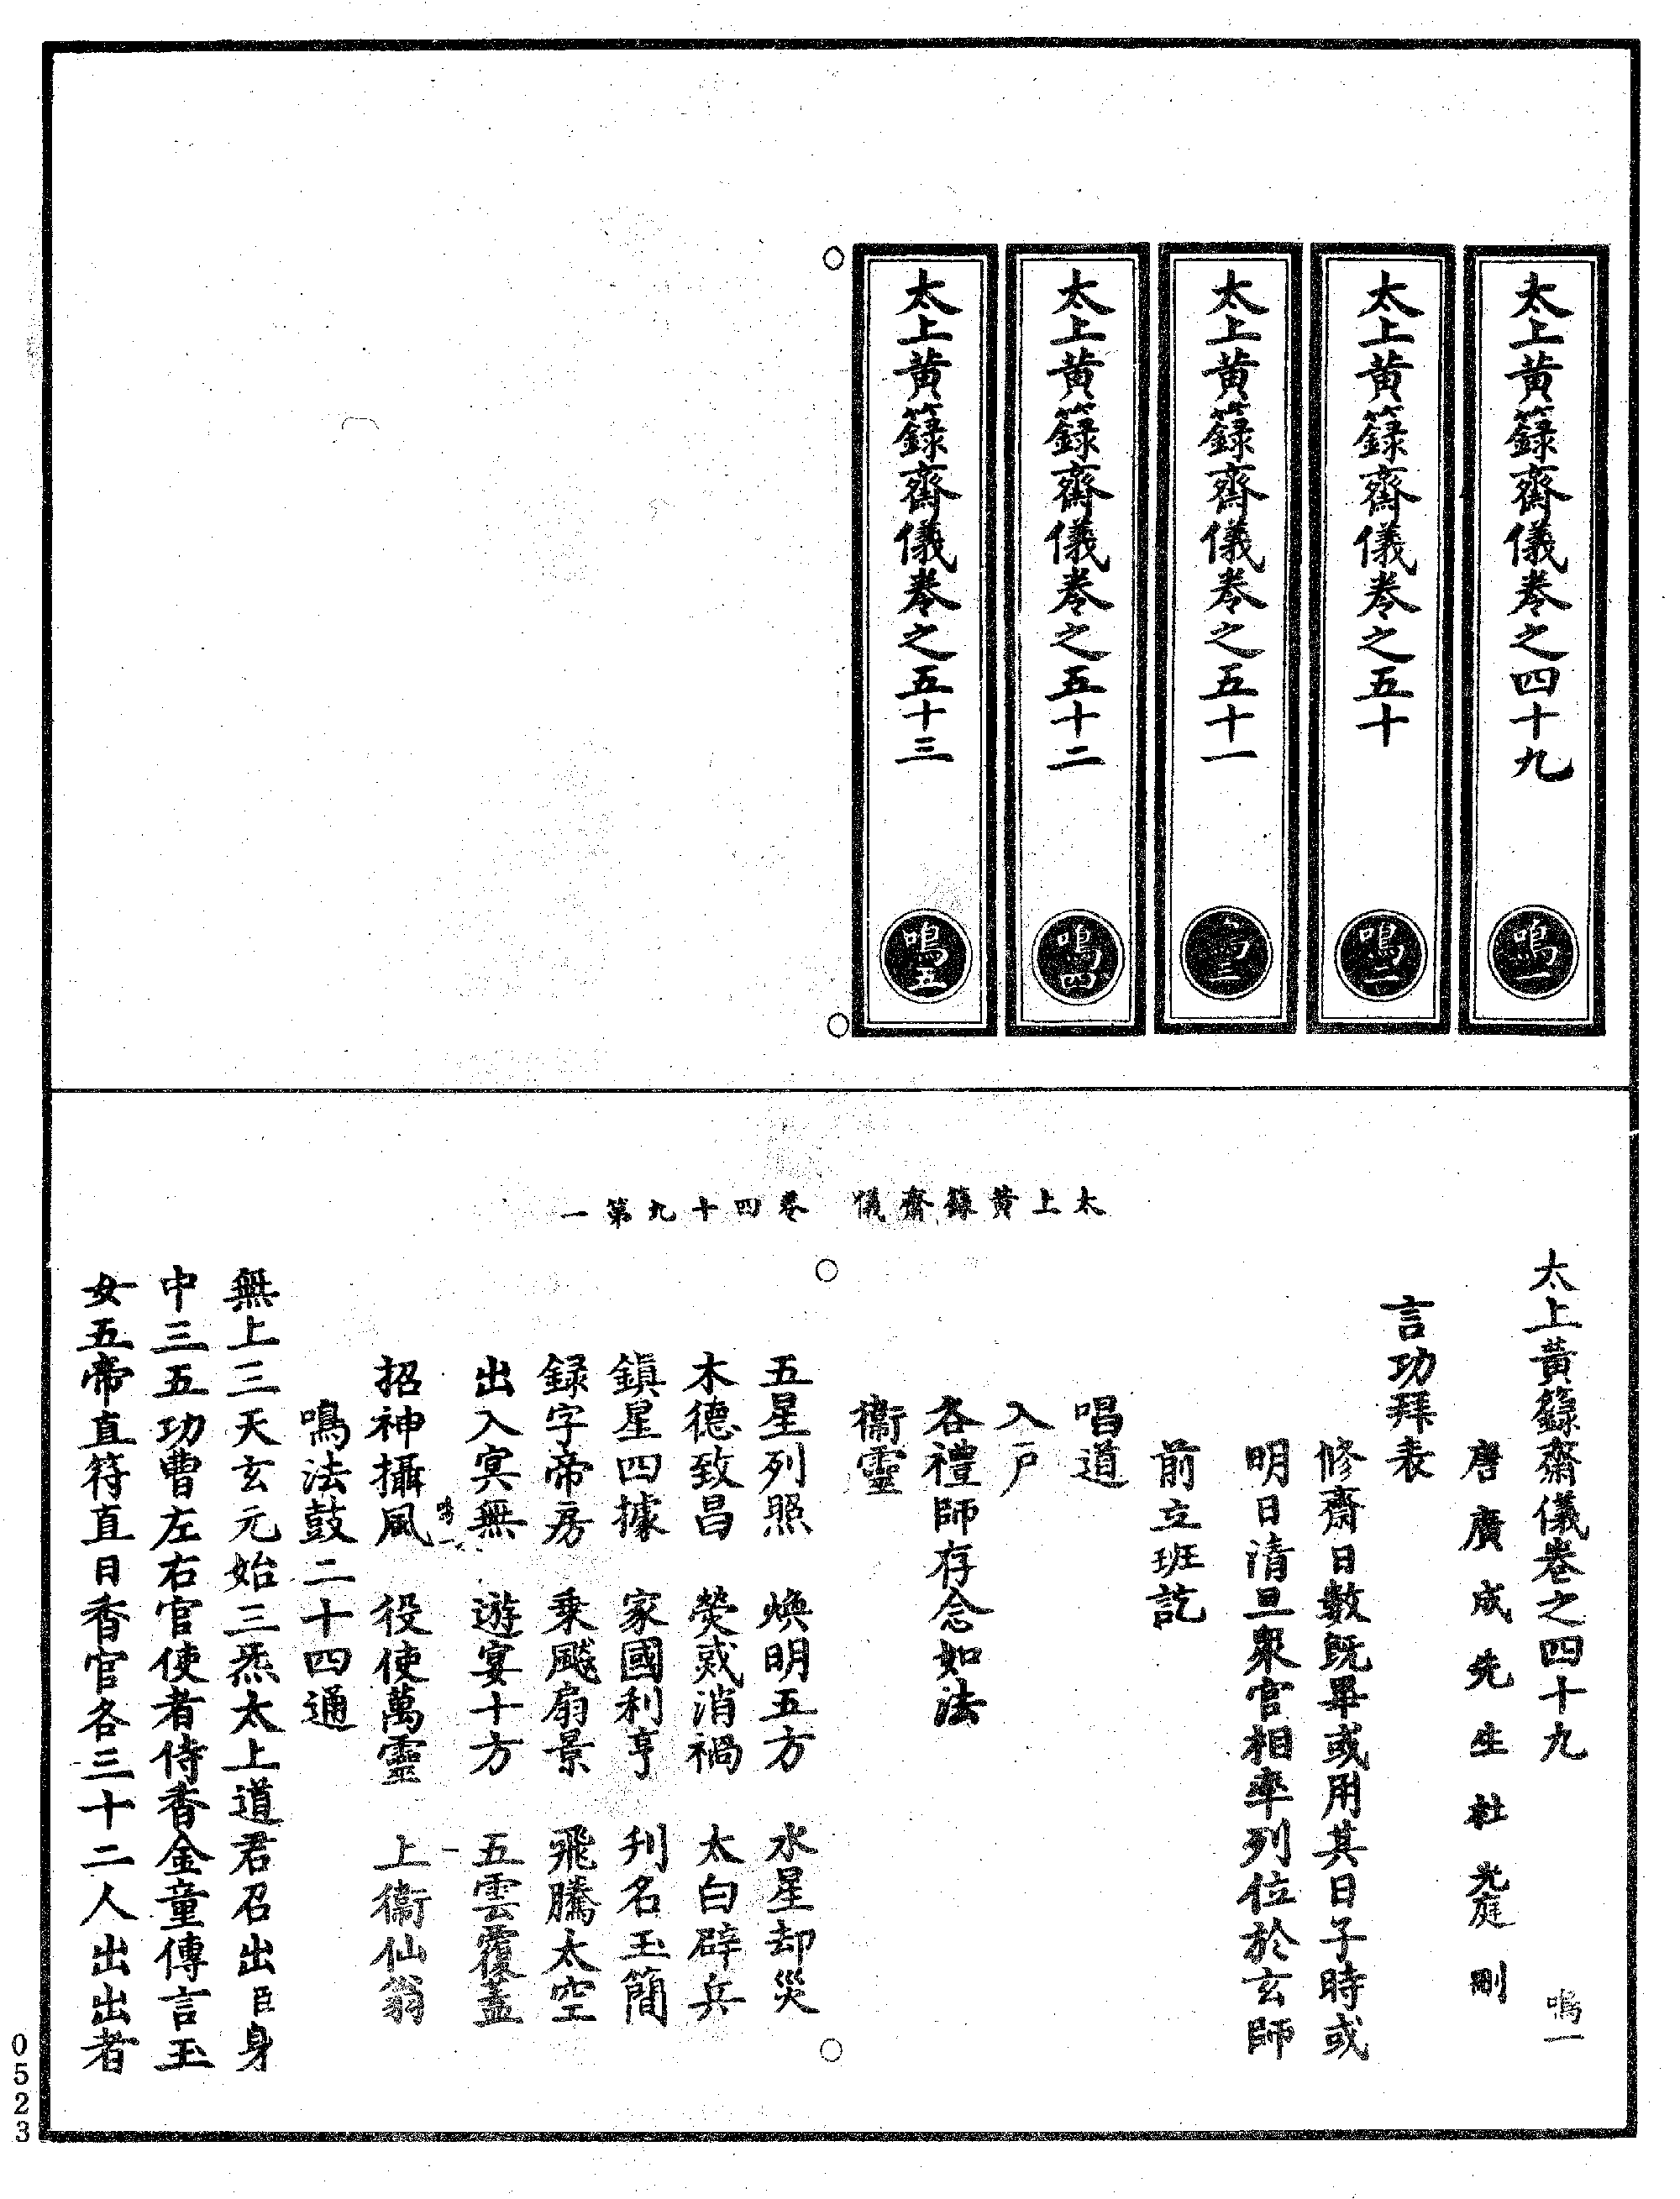 太上黃籙齋儀卷之四十九
鳴一
太上黃籙齋儀卷之五十
鳴二
太上黃籙齋儀卷之五十一
鳴三
太上黃籙齋儀卷之五十二
鳴四
太上黃籙齋儀卷之五十三
鳴五
太上黃籙齋儀　卷四十九第一
太上黃籙齋儀卷之四十九　鳴一
唐廣成先生杜光庭刪
言功拜表
修齋日數既畢或用其日子時或
明日清旦衆官相率列位於玄師
前立班訖
唱道
入戶
各禮師存念如法
衞靈
五星列照　煥明五方　水星却災
木德致昌　熒惑消禍　太白辟兵
鎮星四據　家國利亨　刋名玉簡
録字帝房　乗飈扇景　飛騰太空
出入㝠無　遊宴十方　五雲覆蓋
鳴一
招神攝風　役使萬靈　上衞仙翁
鳴法鼓二十四通
無上三天玄元始三炁太上道君召出臣身
中三五功曹左右官使者侍香金童傳言玉
女五帝直符直日香官各三十二人出出者
0523